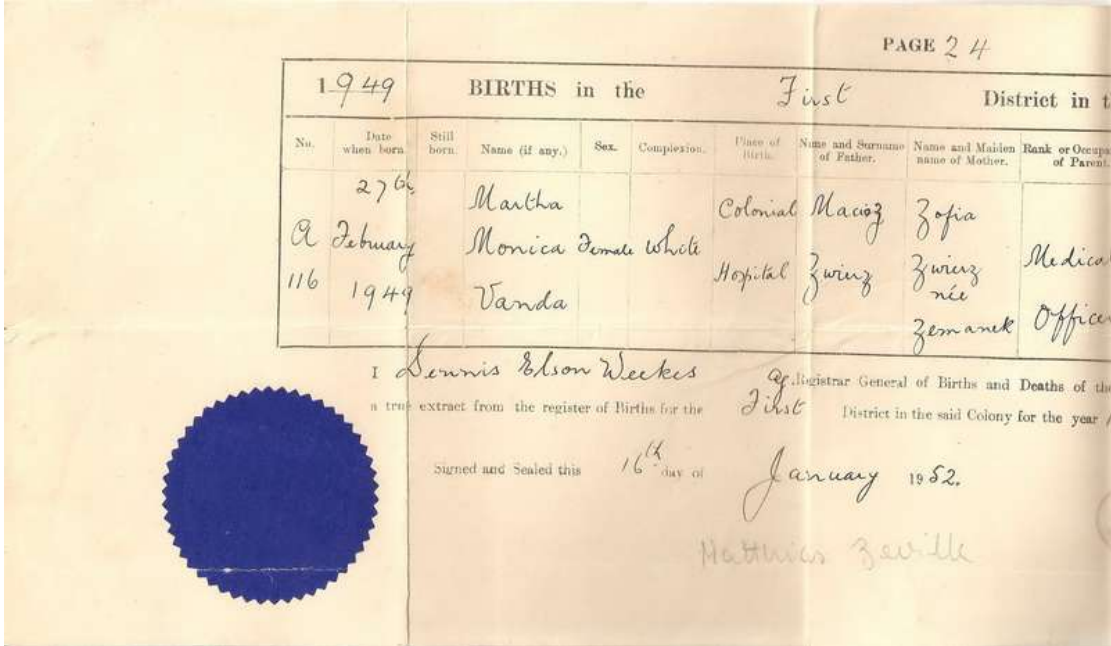 PAGE 24
1949 BIRTHS in the First District in t
No. Date when born. Still born. Name (if any.) Sex. Complexion. Place of Birth. Name and Surname of Father. Name and Maiden name of Mother. Rank or Occupa of Parent.
27th Martha Colonial Macioz Zofia
A February Monica Female White Hospital Zwierz Zwierz Medical
116 1949 Vanda née
Zemanek Officer
I Dennis Elson Weekes ag. Registrar General of Births and Deaths of the
a true extract from the register of Births for the First District in the said Colony for the year 1
Signed and Sealed this 16th day of January 1952.
Matthias Zeville